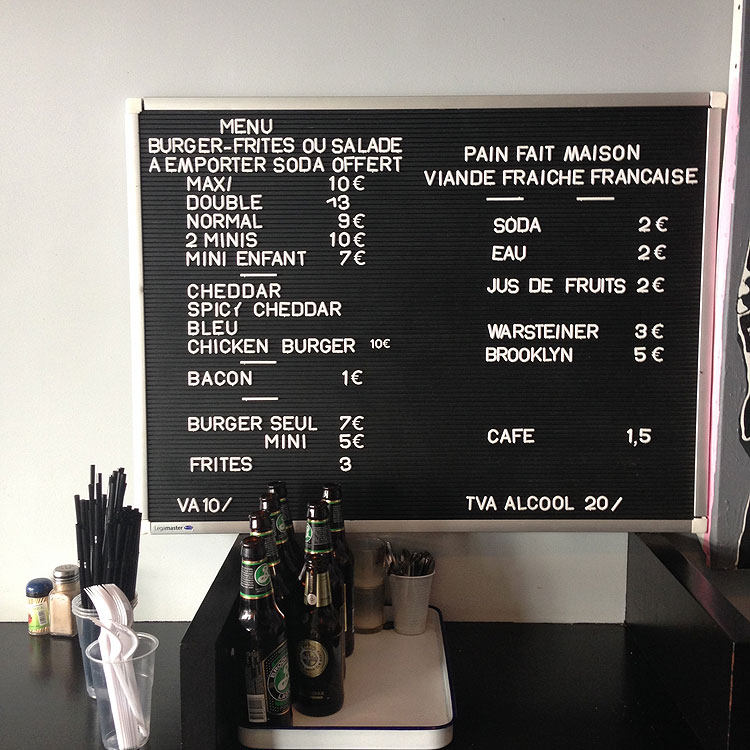 MENU
BURGER-FRITES OU SALADE
A EMPORTER SODA OFFERT
MAXI 10€
DOUBLE 13
NORMAL 9€
2 MINIS 10€
MINI ENFANT 7€
CHEDDAR
SPICY CHEDDAR
BLEU
CHICKEN BURGER 10€
BACON 1€
BURGER SEUL 7€
MINI 5€
FRITES 3
VA 10/
PAIN FAIT MAISON
VIANDE FRAICHE FRANCAISE
SODA 2€
EAU 2€
JUS DE FRUITS 2€
WARSTEINER 3€
BROOKLYN 5€
CAFE 1,5
TVA ALCOOL 20/
Legamaster